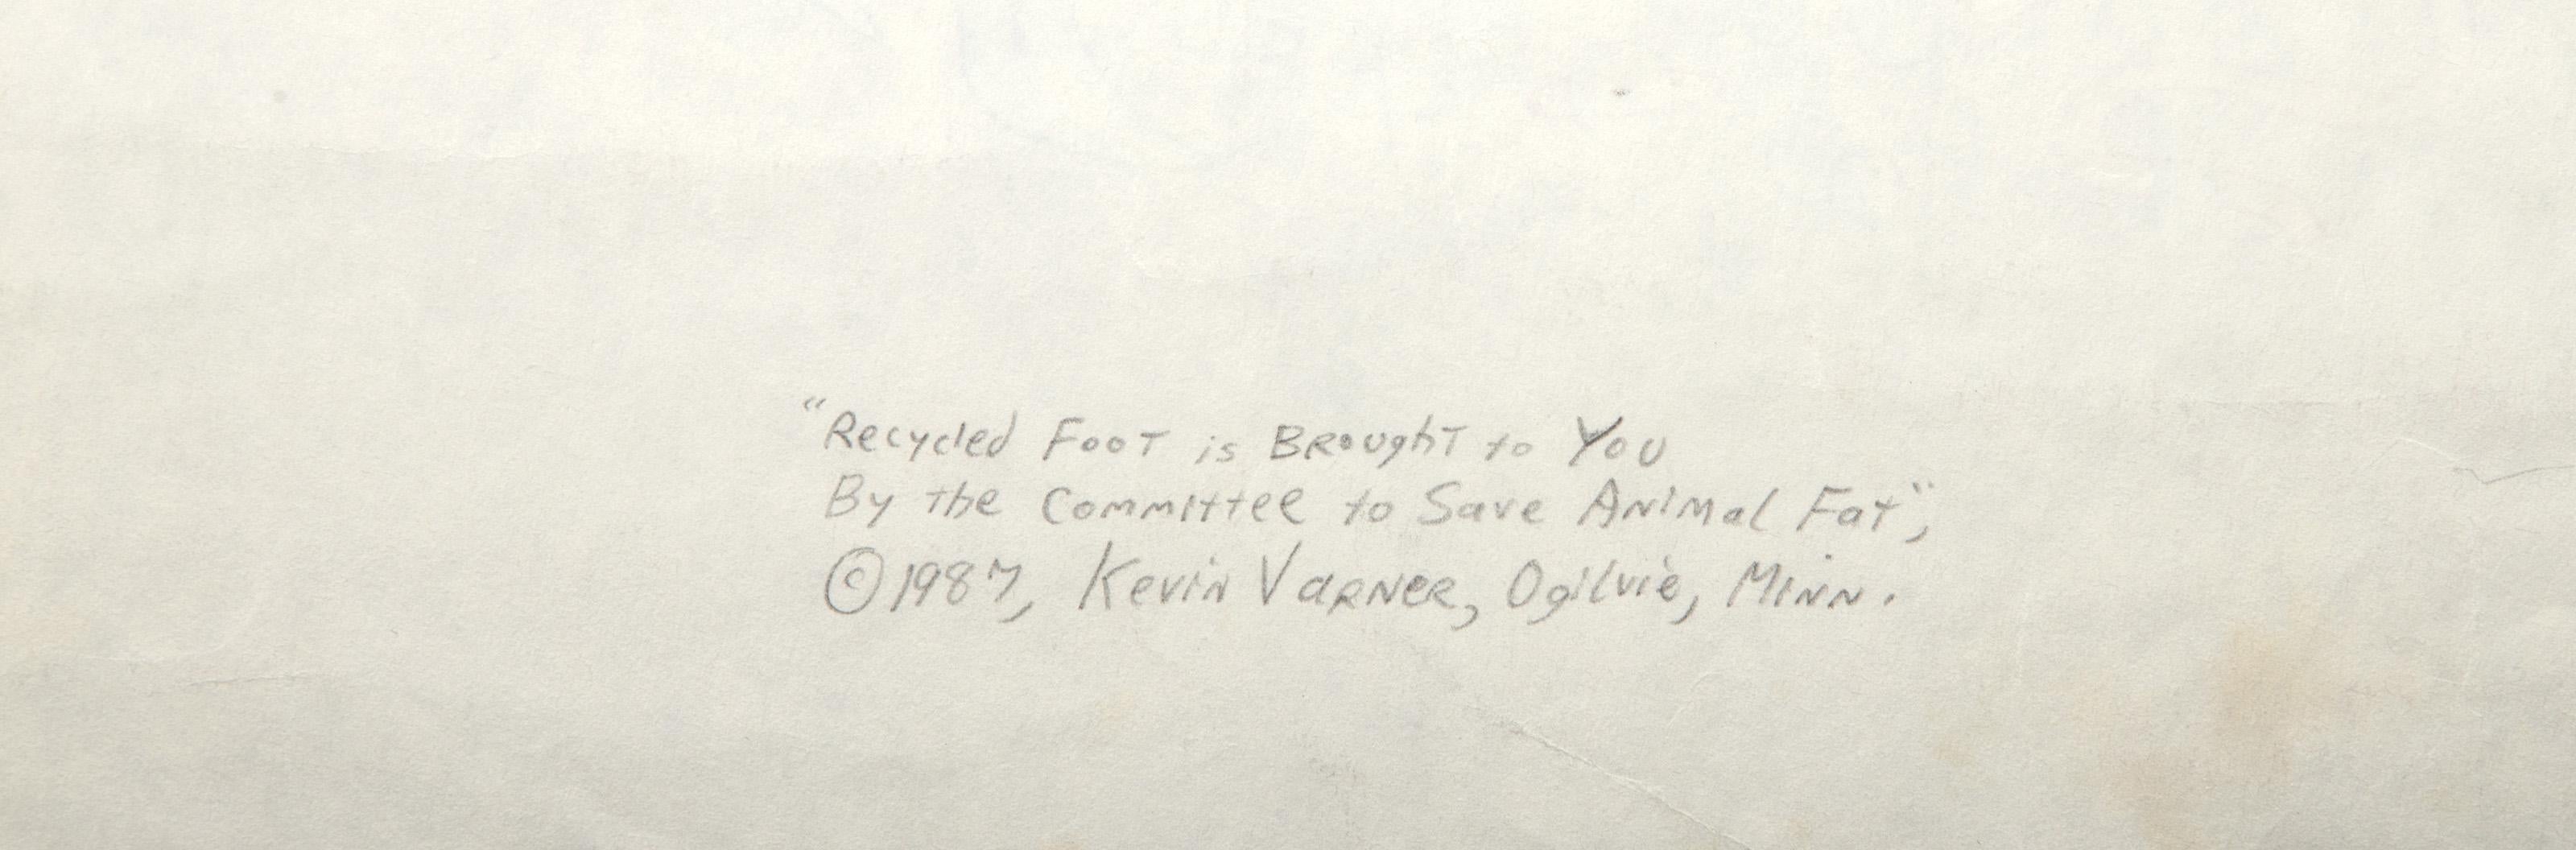 "Recycled Foot is Brought to You
By the Committee to Save Animal Fat",
©1987, Kevin Varner, Ogilvie, Minn.